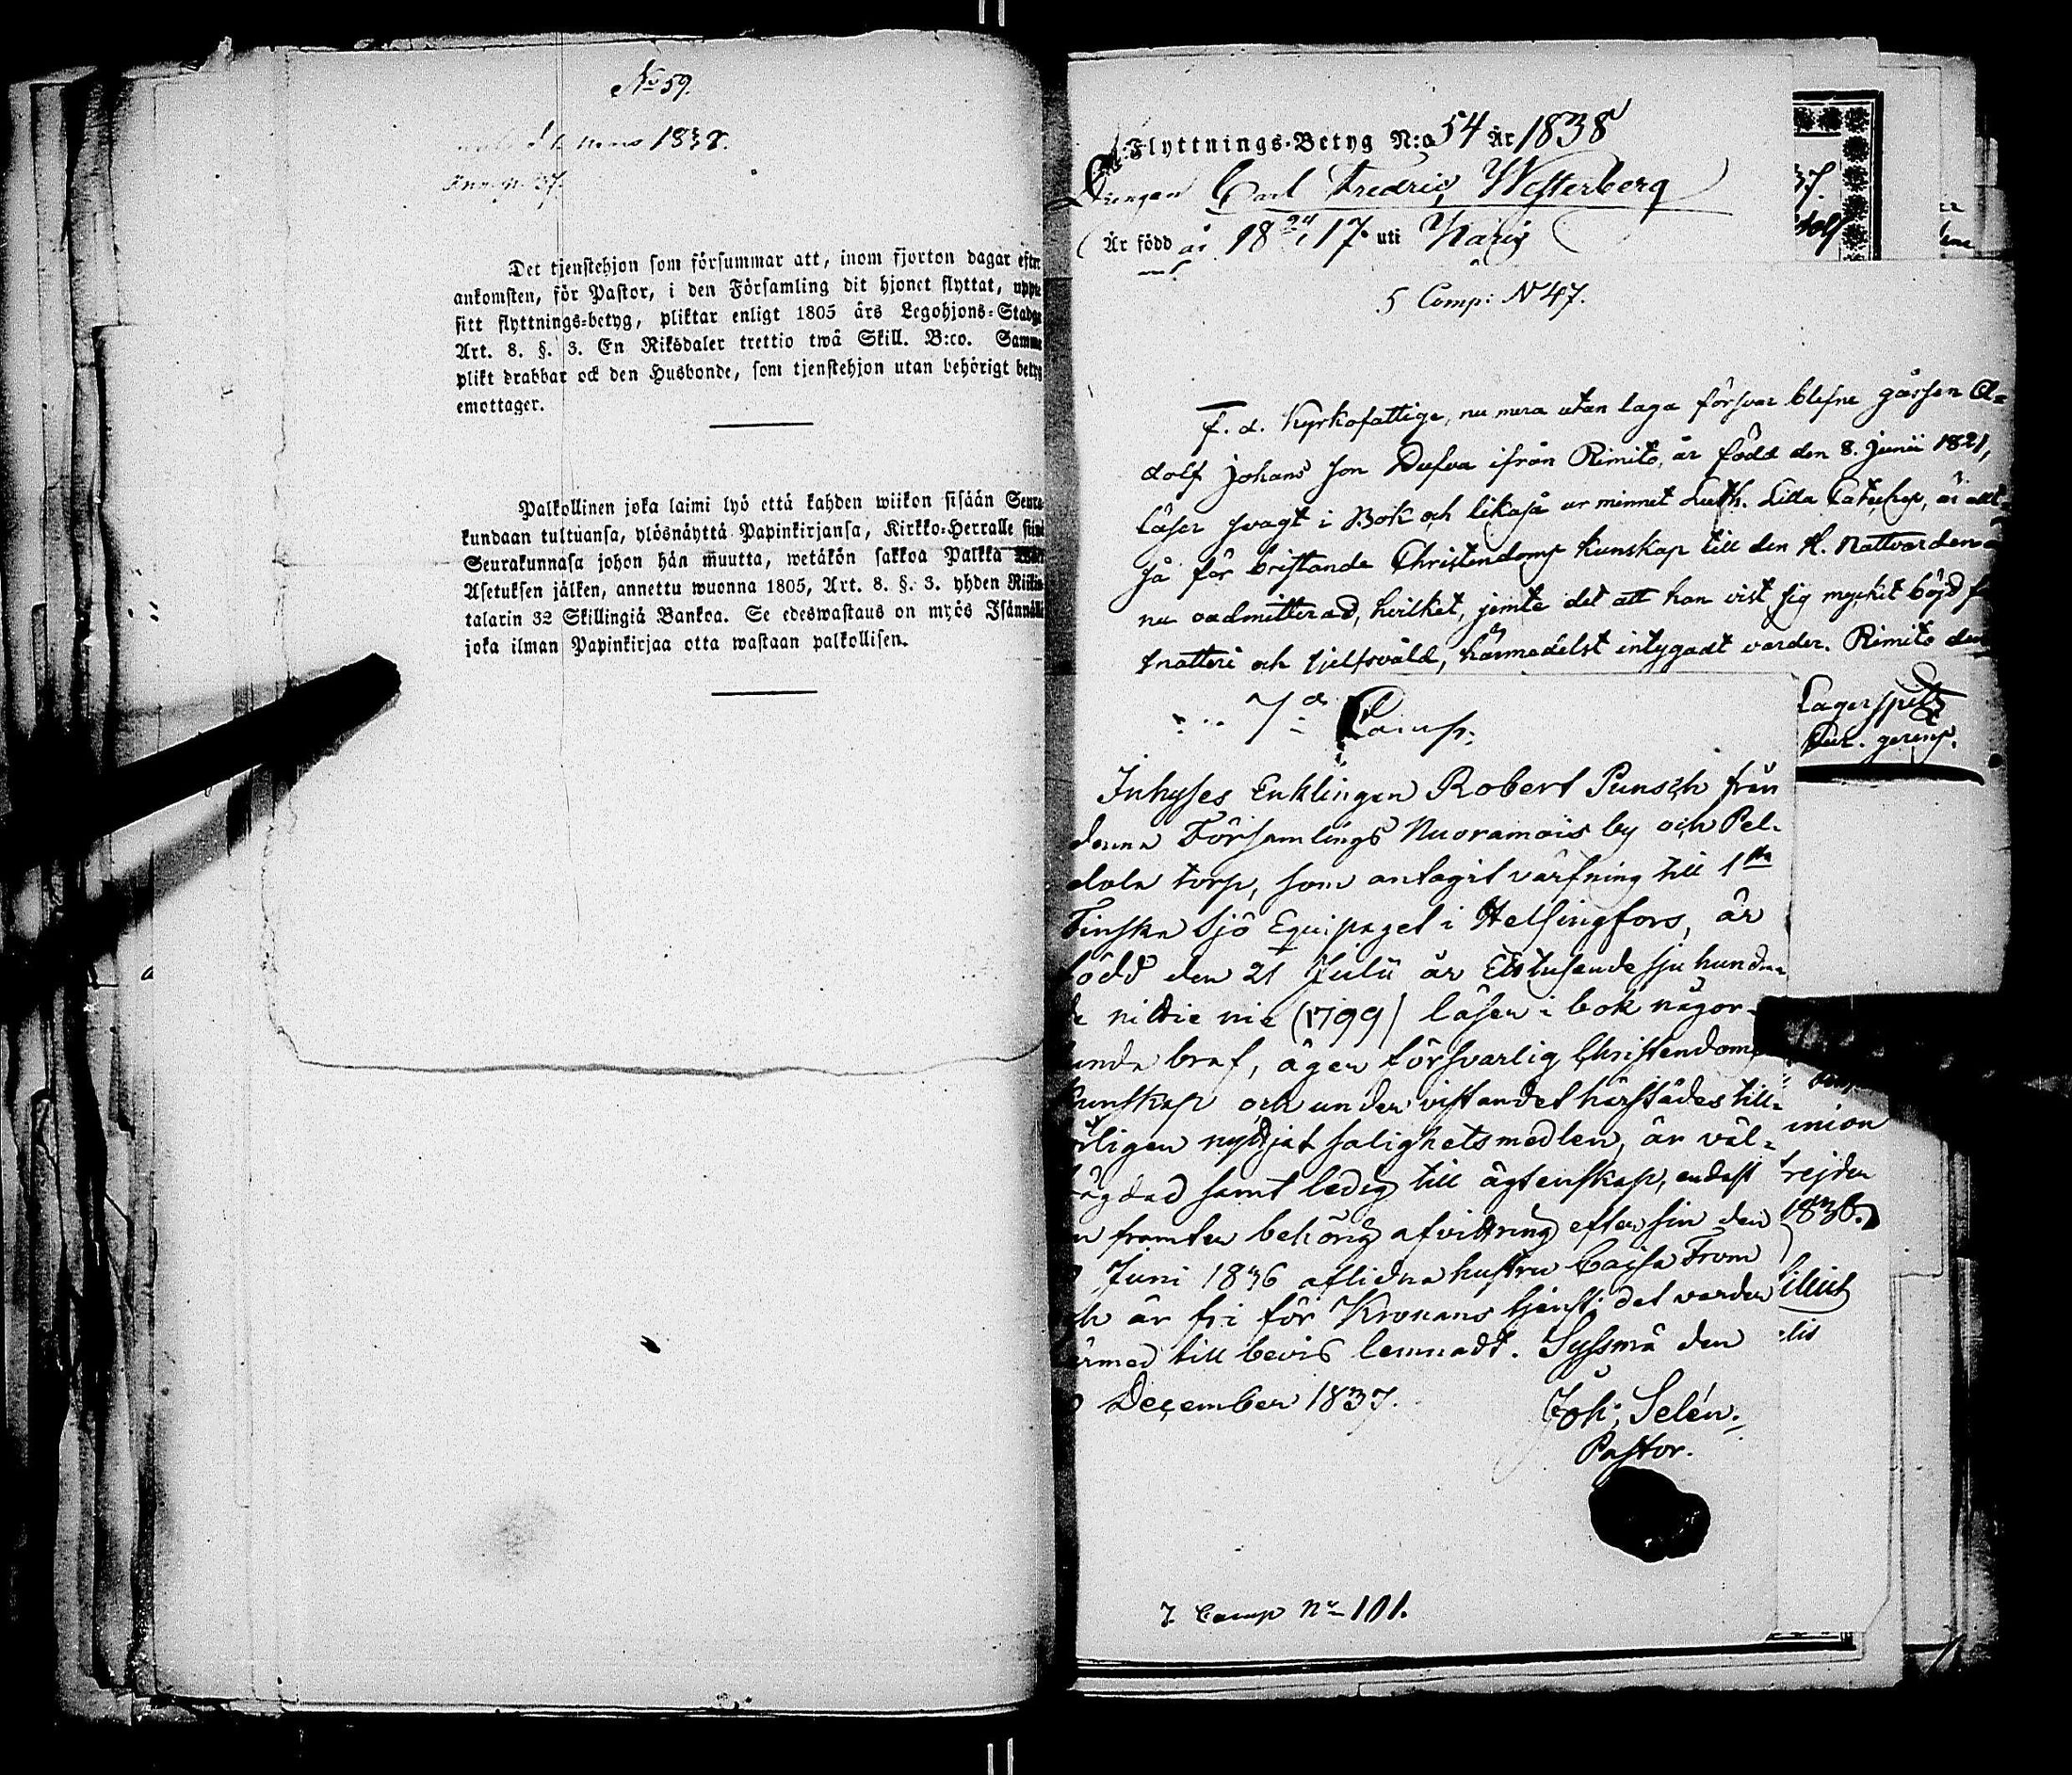 No 59.
1838.
Det tjenstehjon som försummar att, inom fjorton dagar efter
ankomsten, för Pastor, i den Församling dit hjonet flyttat, uppte
sitt flyttnings-betyg, pliktar enligt 1805 års Legohjons-Stadge
Art. 8. §. 3. En Riksdaler trettio twå Skill. B:co. Samme
plikt drabbar ock den Husbonde, som tjenstehjon utan behörigt betyg
emottager.
Palkollinen joka laimi lyö että kahden wiikon sisään Seura-
kundaan tultuansa, ylösnäyttä Papinkirjansa, Kirkko-Herralle siinä
Seurakunnasa johon hän muutta, wetäkön sakkoa Palkka
Asetuksen jälken, annettu wuonna 1805, Art. 8. §. 3. yhden Riikin
talarin 32 Skillingiä Bankoa. Se edeswastaus on myös Isännällä
joka ilman Papinkirjaa otta wastaan palkollisen.
Flyttnings-Betyg N:o 54 År 1838
Drengen Carl Fredric Westerberg
Är född år 18 17 uti Karis
5 Comp: No 47.
f. d. Kyrkofattige, nu mera utan laga försvar blefne gåssen A-
dolf Johans son Dufva ifrån Rimito, är född den 8. Junii 1821,
läser svagt i Bok och likaså ur minnet Luth. Lilla Cateches, är allt-
så för bristande Christendoms kunskap till den H. Nattvarden
nu oadmitterad, hvilket, jemte det att han vist sig mycket böjd f
snatteri och sjelfsvåld, härmedelst intygadt varder. Rimito den
Lagerspetz
7de Comp.
Inhyses Enklingen Robert Punsch från
denna Församlings Nuoramois by och Pel-
dola torp, som antagit värfning till 1sta
Finska Sjö Equipaget i Helsingfors, är
född den 21 Julii år Ettusende sju hundra
de nittie nie (1799) läser i bok någor-
lunda braf, äger försvarlig Christendoms
kunskap och under vistandet härstädes till-
börligen nyttjat salighetsmedlen, är väl-
frägdad samt ledig till ägtenskap, endast
n framter behörig afvittring efter sin den
Juni 1836 aflidna hustru Caisa From
och är fri för Kronans tjenst; det varder
härmed till bevis lemnadt. Syssmä den
December 1837.
Joh: Selén.
Pastor.
7. Comp No 101.
37.
dolf
union
frejden
1838.